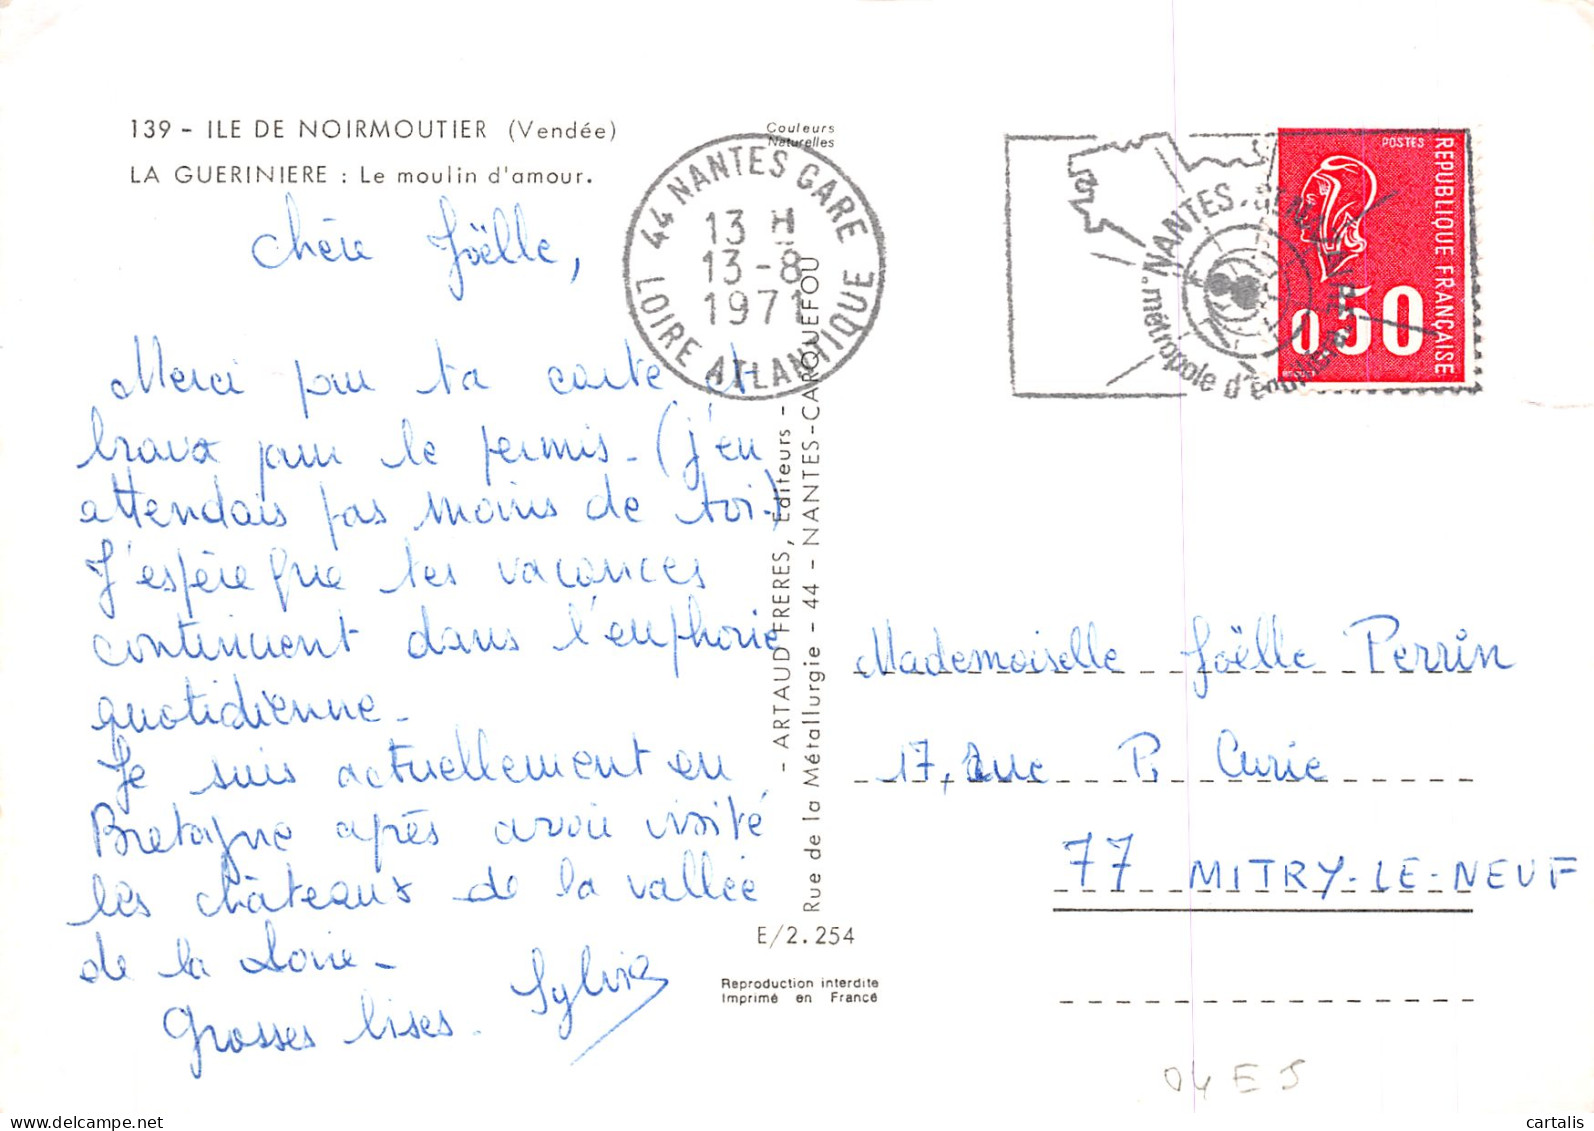 139 - ILE DE NOIRMOUTIER (Vendée)
LA GUERINIERE : Le moulin d'amour.
Couleurs
Naturelles
44 NANTES GARE
13 H
13 - 8
1971
LOIRE ATLANTIQUE
NANTES
métropole d'équilibre
POSTES
REPUBLIQUE FRANÇAISE
0,50
Chère Joëlle,
Merci pour ta carte et
bravo pour le permis - (j'en
attendais pas moins de toi -)
J'espère que tes vacances
continuent dans l'euphorie
quotidienne -
Je suis actuellement en
Bretagne après avoir visité
les châteaux de la vallée
de la Loire -
Grosses bises - Sylvie
- ARTAUD FRERES, Editeurs -
Rue de la Métallurgie - 44 - NANTES-CARQUEFOU
E/2.254
Reproduction interdite
Imprimé en France
Mademoiselle Joëlle Perrin
17, rue P. Curie
77 MITRY-LE-NEUF
04 E 5
cartalis
www.delcampe.net